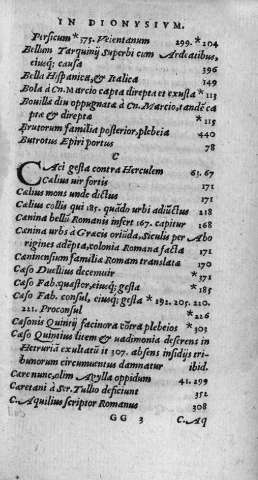 IN DIONYSIUM.
Persicum *375. Veientanum 299. *204
Bellum Tarquinij Superbi cum Ardeatibus,
eiusq; causa 396
Bella Hispanica, & Italica 149
Bola à Cn. Marcio capta direpta et exusta *113
Bouilla diu oppugnata à Cn. Marcio, tandē ca
pta & direpta *115
Brutorum familia posterior, plebeia 440
Butrotus Epiri portus 78
C
CAci gesta contra Herculem 65. 67
Cælius uir fortis 171
Cælius mons unde dictus 171
Cælius collis qui 185. quādo urbi adiūctus 218
Cænina bellū Romanis infert 167. capitur 168
Cænina urbs à Græcis cōdita, Siculis per Abo
rigines adēpta, colonia Romana facta 171
Cæninensium familia Romam translata 170
Cæso Duellius decemuir *371
Cæso Fab. quæstor, eiusq; gesta *185
Cæso Fab. consul, eiusq; gesta *192. 205. 210.
211. Proconsul *226
Cæsonis Quintij facinora cōtra plebeios *303
Cæso Quintius litem & uadimonia deserens in
Hetruriā exultatū it 307. absens insidijs tri-
bunorum circumuentus damnatur ibid.
Cære nunc, olim Agylla oppidum 41. 299
Cæretani à Ser. Tullio deficiunt 352
C. Aquilius scriptor Romanus 308
GG 3 C. Aq